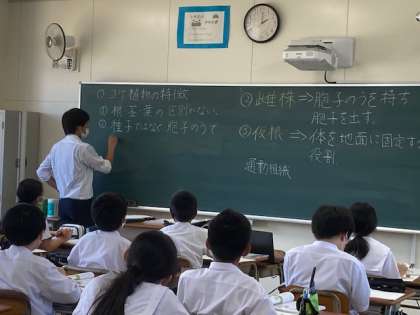 ① コケ植物の特徴
② 根茎葉の区別がない。
③ 種子ではなく胞子のうで
② 雌株⇒胞子のうを持ち
胞子を出す。
③ 仮根⇒体を地面に固定す
役割